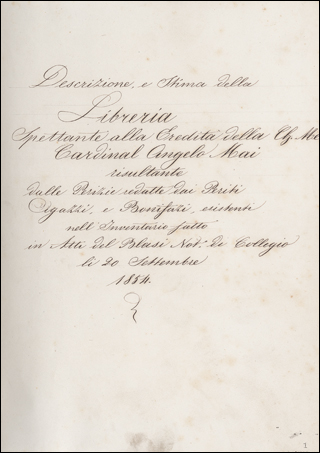 Descrizione, e Stima della
Libreria
Spettante alla Eredità della Ch. Me
Cardinal Angelo Mai
risultante
dalle Perizie redatte dai Periti
Cigazzi, e Bonifazi, esistenti
nell'Inventario fatto
in Atti del Blasi Not.º di Collegio
li 20 Settembre
1854.
1